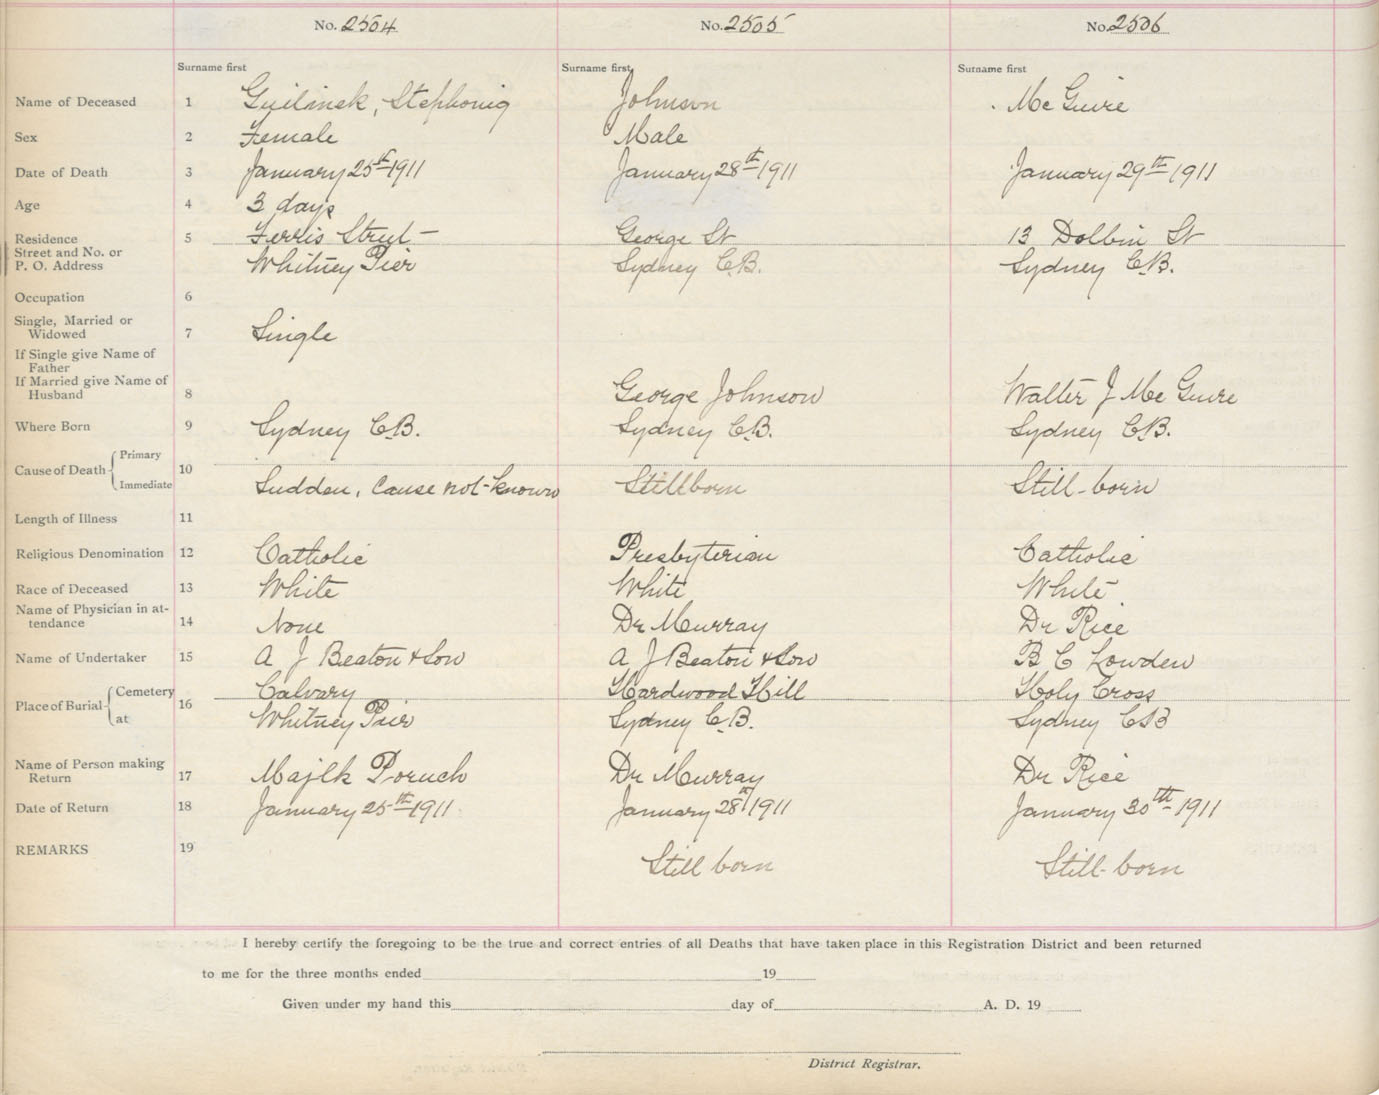 No. 2504 No. 2505 No. 2506
Surname first Surname first Surname first
Name of Deceased 1 Guilinsk, Stephonig Johnson Mc Guire
Sex 2 Female Male
Date of Death 3 January 25th 1911 January 28th 1911 January 29th 1911
Age 4 3 days
Residence 5 Ferris Street George St 13 Dolbin St
Street and No. or
P. O. Address Whitney Pier Sydney C.B. Sydney C.B.
Occupation 6
Single, Married or
Widowed 7 Single
If Single give Name of
Father
If Married give Name of
Husband 8 George Johnson Walter J Mc Guire
Where Born 9 Sydney C.B. Sydney C.B. Sydney C.B.
Primary
Cause of Death 10
Immediate Sudden, Cause not known Stillborn Still-born
Length of Illness 11
Religious Denomination 12 Catholic Presbyterian Catholic
Race of Deceased 13 White White White
Name of Physician in at-
tendance 14 None Dr Murray Dr Rice
Name of Undertaker 15 A J Beaton & Son A J Beaton & Son B C Lowden
Cemetery Calvary Hardwood Hill Holy Cross
Place of Burial 16
at Whitney Pier Sydney C.B. Sydney CB
Name of Person making
Return 17 Majlk Poruch Dr Murray Dr Rice
Date of Return 18 January 25th 1911. January 28th 1911 January 30th 1911
REMARKS 19 Still born Still-born
I hereby certify the foregoing to be the true and correct entries of all Deaths that have taken place in this Registration District and been returned
to me for the three months ended 19
Given under my hand this day of A. D. 19
District Registrar.